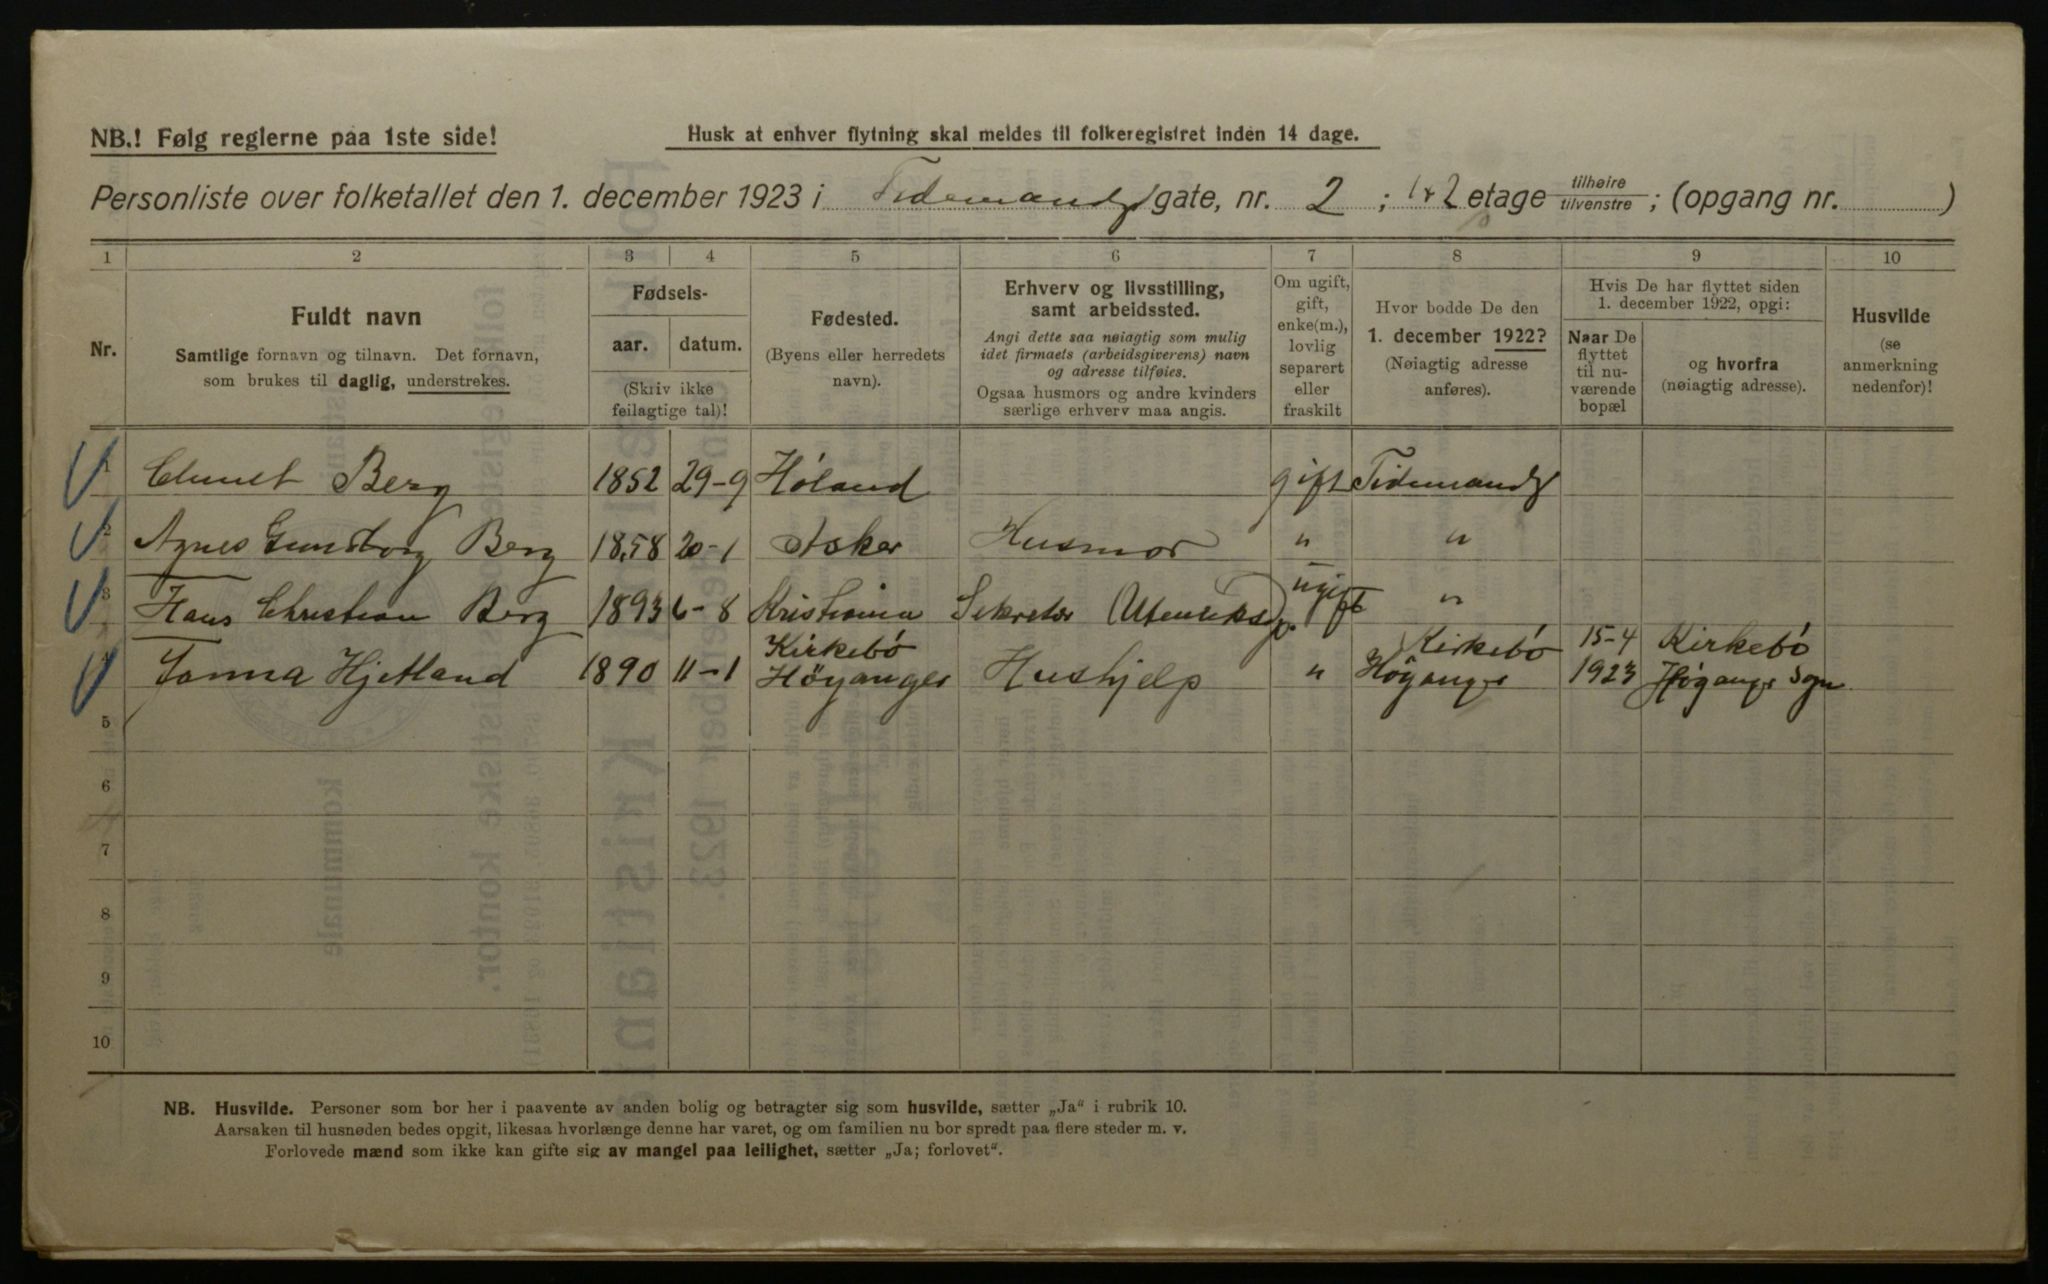 NB.! Følg reglerne paa 1ste side!
Husk at enhver flytning skal meldes til folkeregistret inden 14 dage.
Personliste over folketallet den 1. december 1923 i Tidemands gate, nr. 2 ; 1 + 2 etage tilhøire tilvenstre ; (opgang nr. )
1 2 3 4 5 6 7 8 9 10
Nr.
Fuldt navn
Samtlige fornavn og tilnavn. Det fornavn,
som brukes til daglig, understrekes.
Fødsels-
aar. datum.
(Skriv ikke
feilagtige tal)!
Fødested.
(Byens eller herredets
navn).
Erhverv og livsstilling,
samt arbeidssted.
Angi dette saa nøiagtig som mulig
idet firmaets (arbeidsgiverens) navn
og adresse tilføies.
Ogsaa husmors og andre kvinders
særlige erhverv maa angis.
Om ugift,
gift,
enke(m.),
lovlig
separert
eller
fraskilt
Hvor bodde De den
1. december 1922?
(Nøiagtig adresse
anføres).
Hvis De har flyttet siden
1. december 1922, opgi:
Naar De
flyttet
til nu-
værende
bopæl
og hvorfra
(nøiagtig adresse).
Husvilde
(se
anmerkning
nedenfor)!
1 Berg 1852 29-9 Høland gift Tidemands
2 Agnes Berg 1858 20-1 Asker Husmor " "
3 Hans Christian Berg 1893 6-8 Kristiania Sekretær Utenriksdp. ugift "
4 Hjetland 1890 11-1 Kirkebö Höyanger Hushjelp " Kirkebö Höyanger 15-4 1923 Kirkebö Höyanger Sogn
5
6
7
8
9
10
NB. Husvilde. Personer som bor her i paavente av anden bolig og betragter sig som husvilde, sætter „Ja“ i rubrik 10.
Aarsaken til husnøden bedes opgit, likesaa hvorlænge denne har varet, og om familien nu bor spredt paa flere steder m. v.
Forlovede mænd som ikke kan gifte sig av mangel paa leilighet, sætter „Ja; forlovet“.